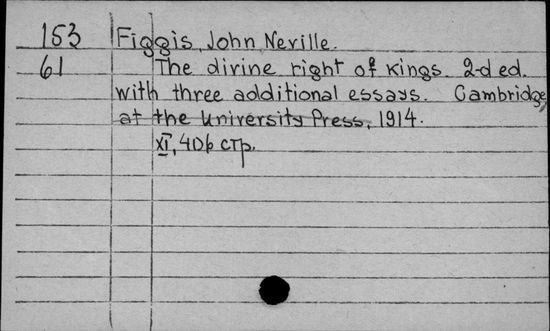 153 Figgis, John Neville.
61 The divine right of kings. 2-d ed.
with three additional essays. Cambridge,
at the University Press, 1914.
XI, 406 стр.